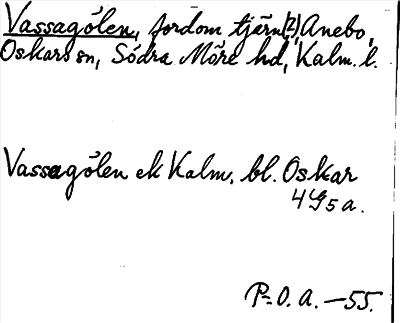 Vassagölen, fordom tjärn(?), Anebo,
Oskars sn, Södra Möre hd, Kalm. l.
Vassagölen ek Kalm. bl. Oskar
4G5a.
P-O. A. -55.